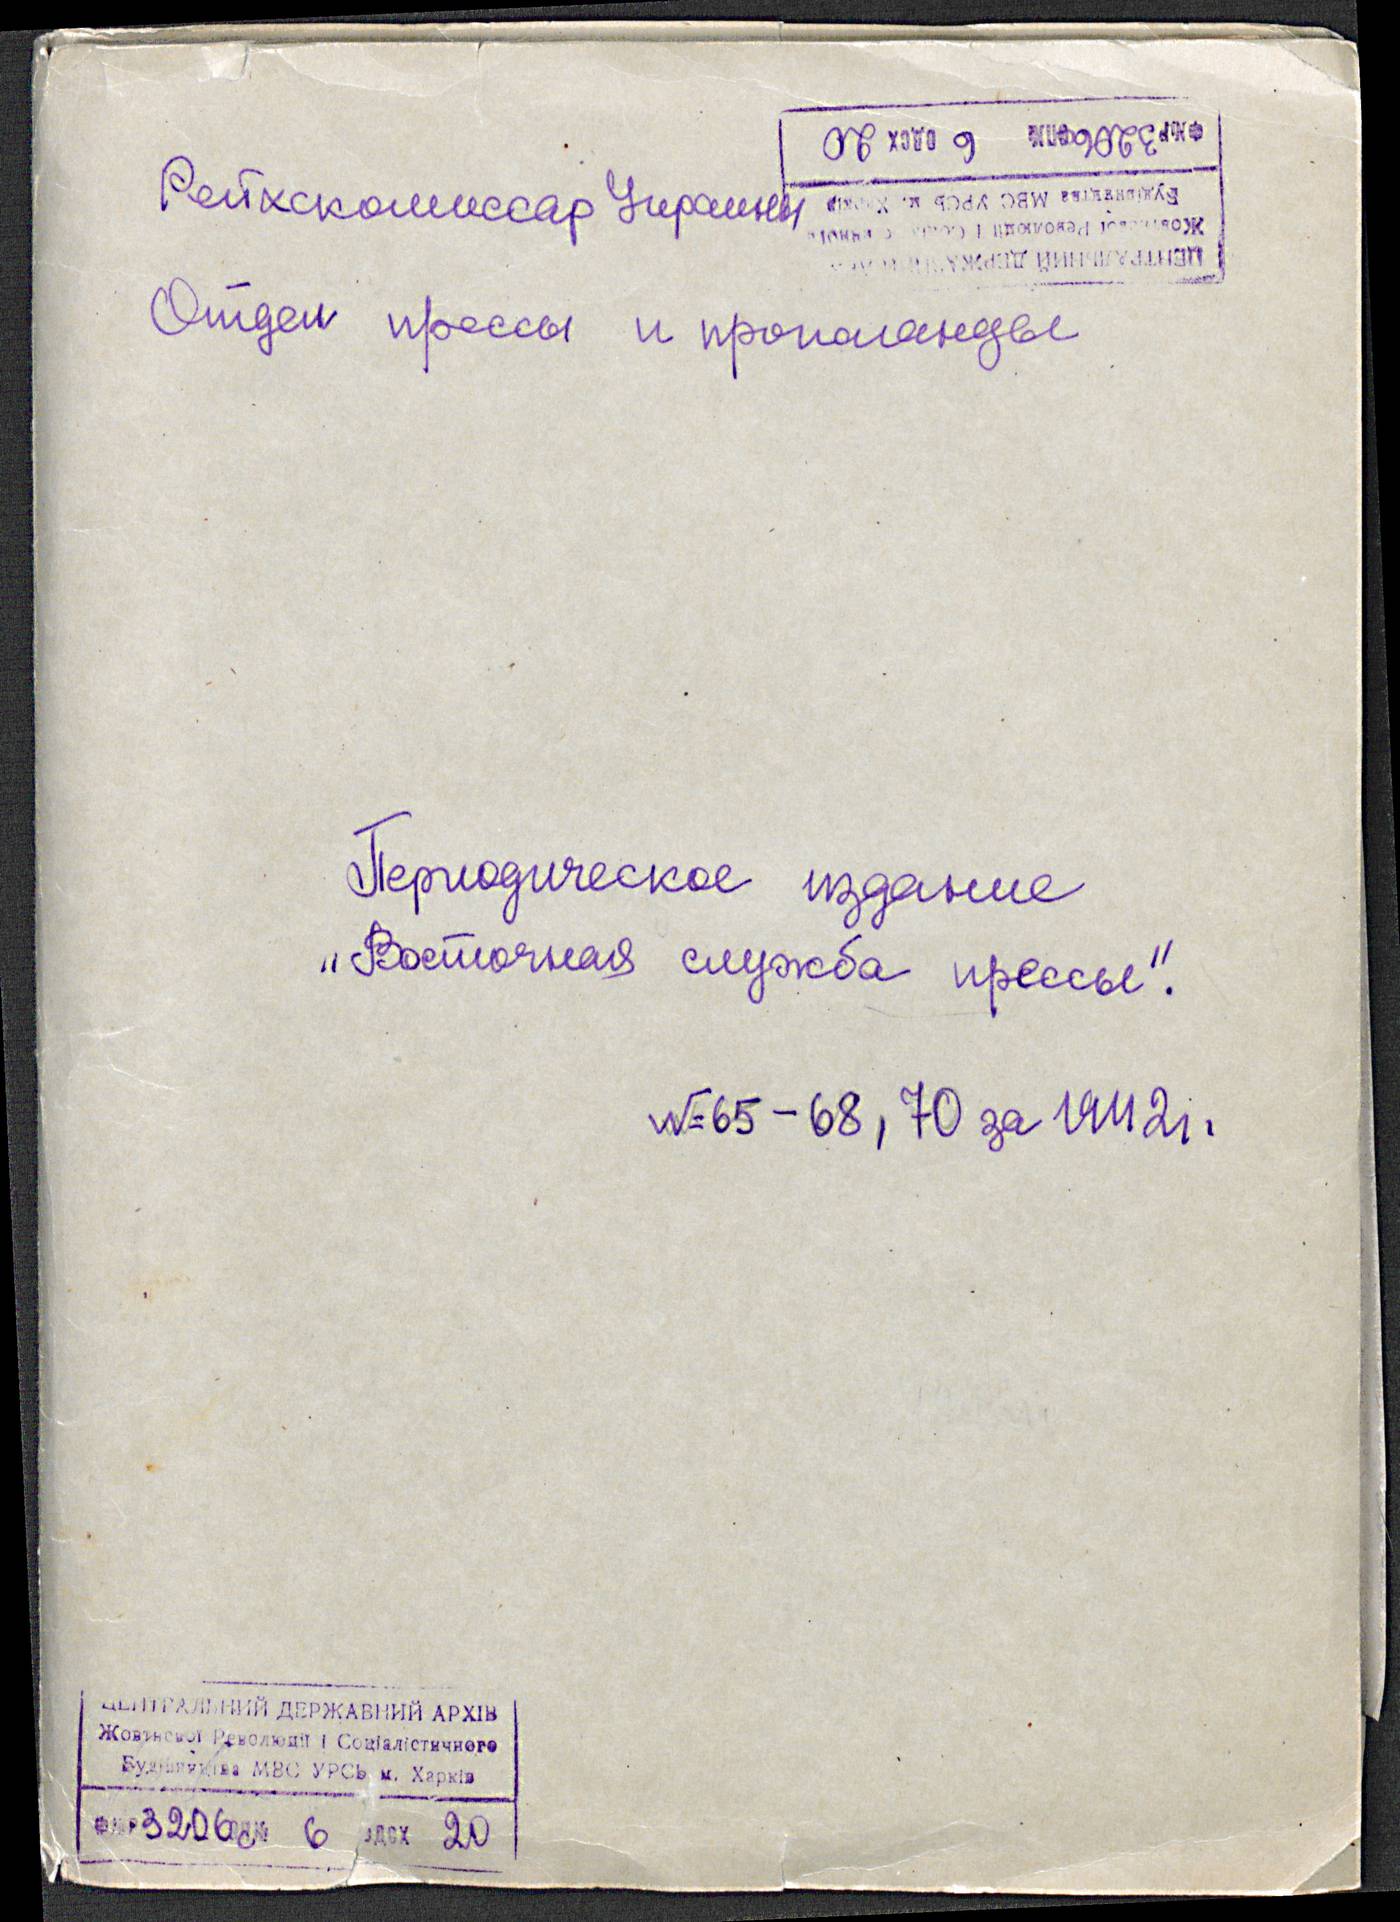 Рейхскомиссар Украины
Отдел прессы и пропаганды
ЦЕНТРАЛЬНИЙ ДЕРЖАВНИЙ
Жовтневої Революції і
Будівництва МВС УРСР м. Харків
Ф№Р 3206 ОП№ 6 ОДСХ 20
Периодическое издание
„Восточная служба прессы".
№ 65-68, 70 за 1942г.
ЦЕНТРАЛЬНИЙ ДЕРЖАВНИЙ АРХІВ
Жовтневої Революції і Соціалістичного
Будівництва МВС УРСР м. Харків
Ф№Р 3206 ОП№ 6 ОДСХ 20